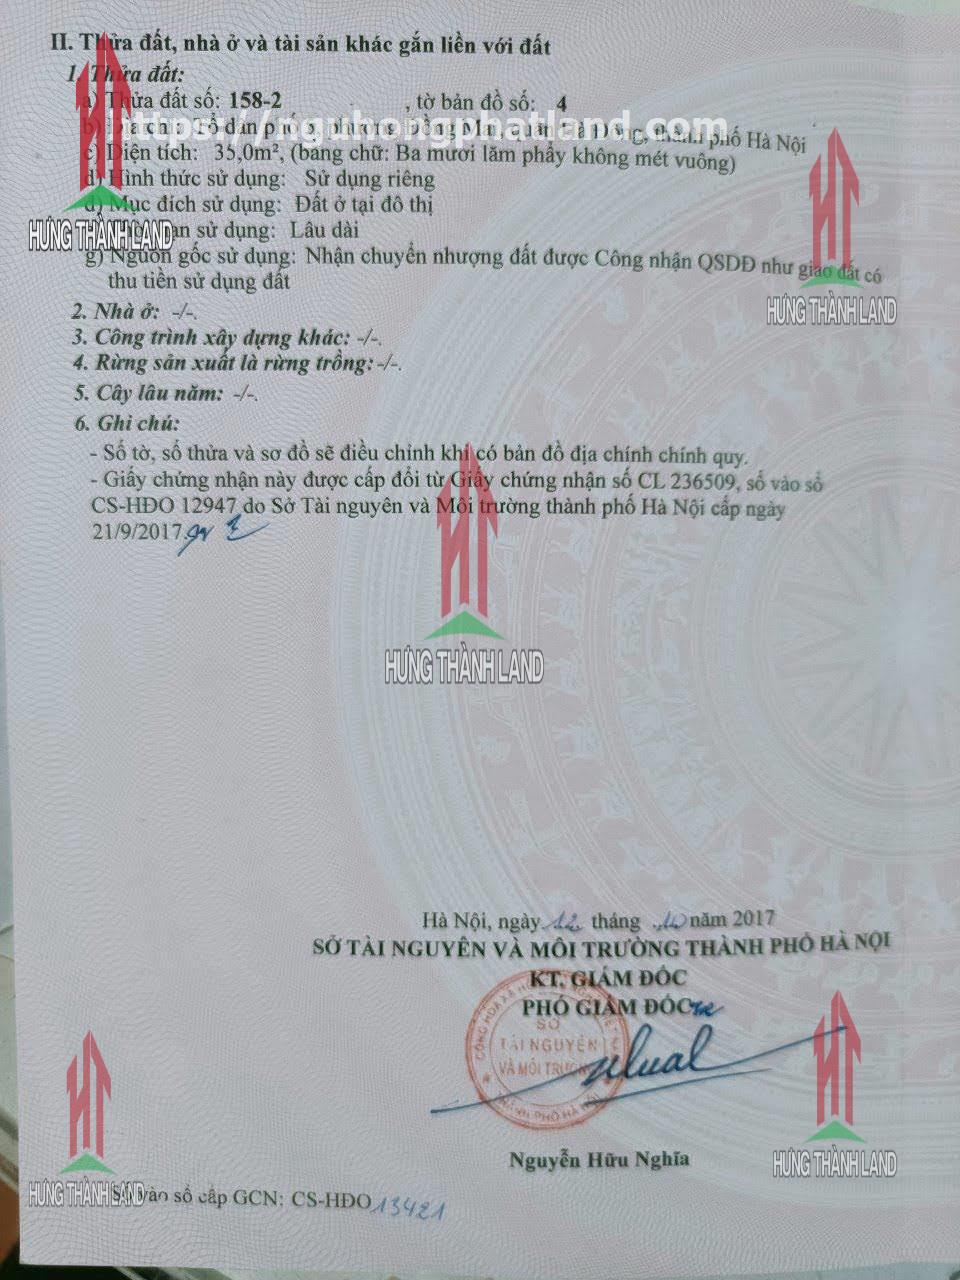 II. Thửa đất, nhà ở và tài sản khác gắn liền với đất
1. Thửa đất:
a) Thửa đất số: 158-2 , tờ bản đồ số: 4
https://nguhongphatland.com
b) Địa chỉ: Tổ dân phố , phường Đồng Mai, quận Hà Đông, thành phố Hà Nội
c) Diện tích: 35,0m², (bằng chữ: Ba mươi lăm phẩy không mét vuông)
d) Hình thức sử dụng: Sử dụng riêng
đ) Mục đích sử dụng: Đất ở tại đô thị
HƯNG THÀNH LAND
hạn sử dụng: Lâu dài
g) Nguồn gốc sử dụng: Nhận chuyển nhượng đất được Công nhận QSDĐ như giao đất có
thu tiền sử dụng đất
HƯNG THÀNH LAND
2. Nhà ở: -/-.
3. Công trình xây dựng khác: -/-.
4. Rừng sản xuất là rừng trồng: -/-.
5. Cây lâu năm: -/-.
6. Ghi chú:
- Số tờ, số thửa và sơ đồ sẽ điều chỉnh khi có bản đồ địa chính chính quy.
- Giấy chứng nhận này được cấp đổi từ Giấy chứng nhận số CL 236509, số vào sổ
CS-HĐO 12947 do Sở Tài nguyên và Môi trường thành phố Hà Nội cấp ngày
21/9/2017.
HƯNG THÀNH LAND
Hà Nội, ngày 12 tháng 10 năm 2017
SỞ TÀI NGUYÊN VÀ MÔI TRƯỜNG THÀNH PHỐ HÀ NỘI
KT. GIÁM ĐỐC
PHÓ GIÁM ĐỐC
SỞ
TÀI NGUYÊN
VÀ MÔI TRƯỜNG
THÀNH PHỐ HÀ NỘI
Nguyễn Hữu Nghĩa
HƯNG THÀNH LAND
HƯNG THÀNH LAND
Số vào sổ cấp GCN: CS-HĐO 13421